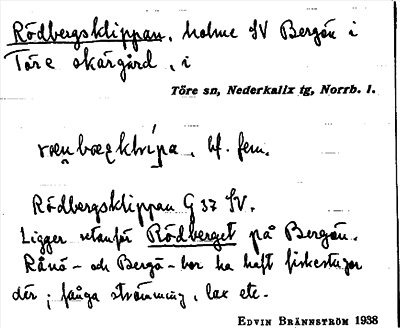 Rödbergsklippan, holme SV Bergön i
Töre skärgård, i
Töre sn, Nederkalix tg, Norrb. l.
bf. fem.
Rödbergsklippan G 37 SV.
Ligger utanför Rödberget på Bergön.
Rånö- och Bergö-bor ha haft fiskestugor
där; fånga strömming, lax etc.
EDVIN BRÄNNSTRÖM 1938